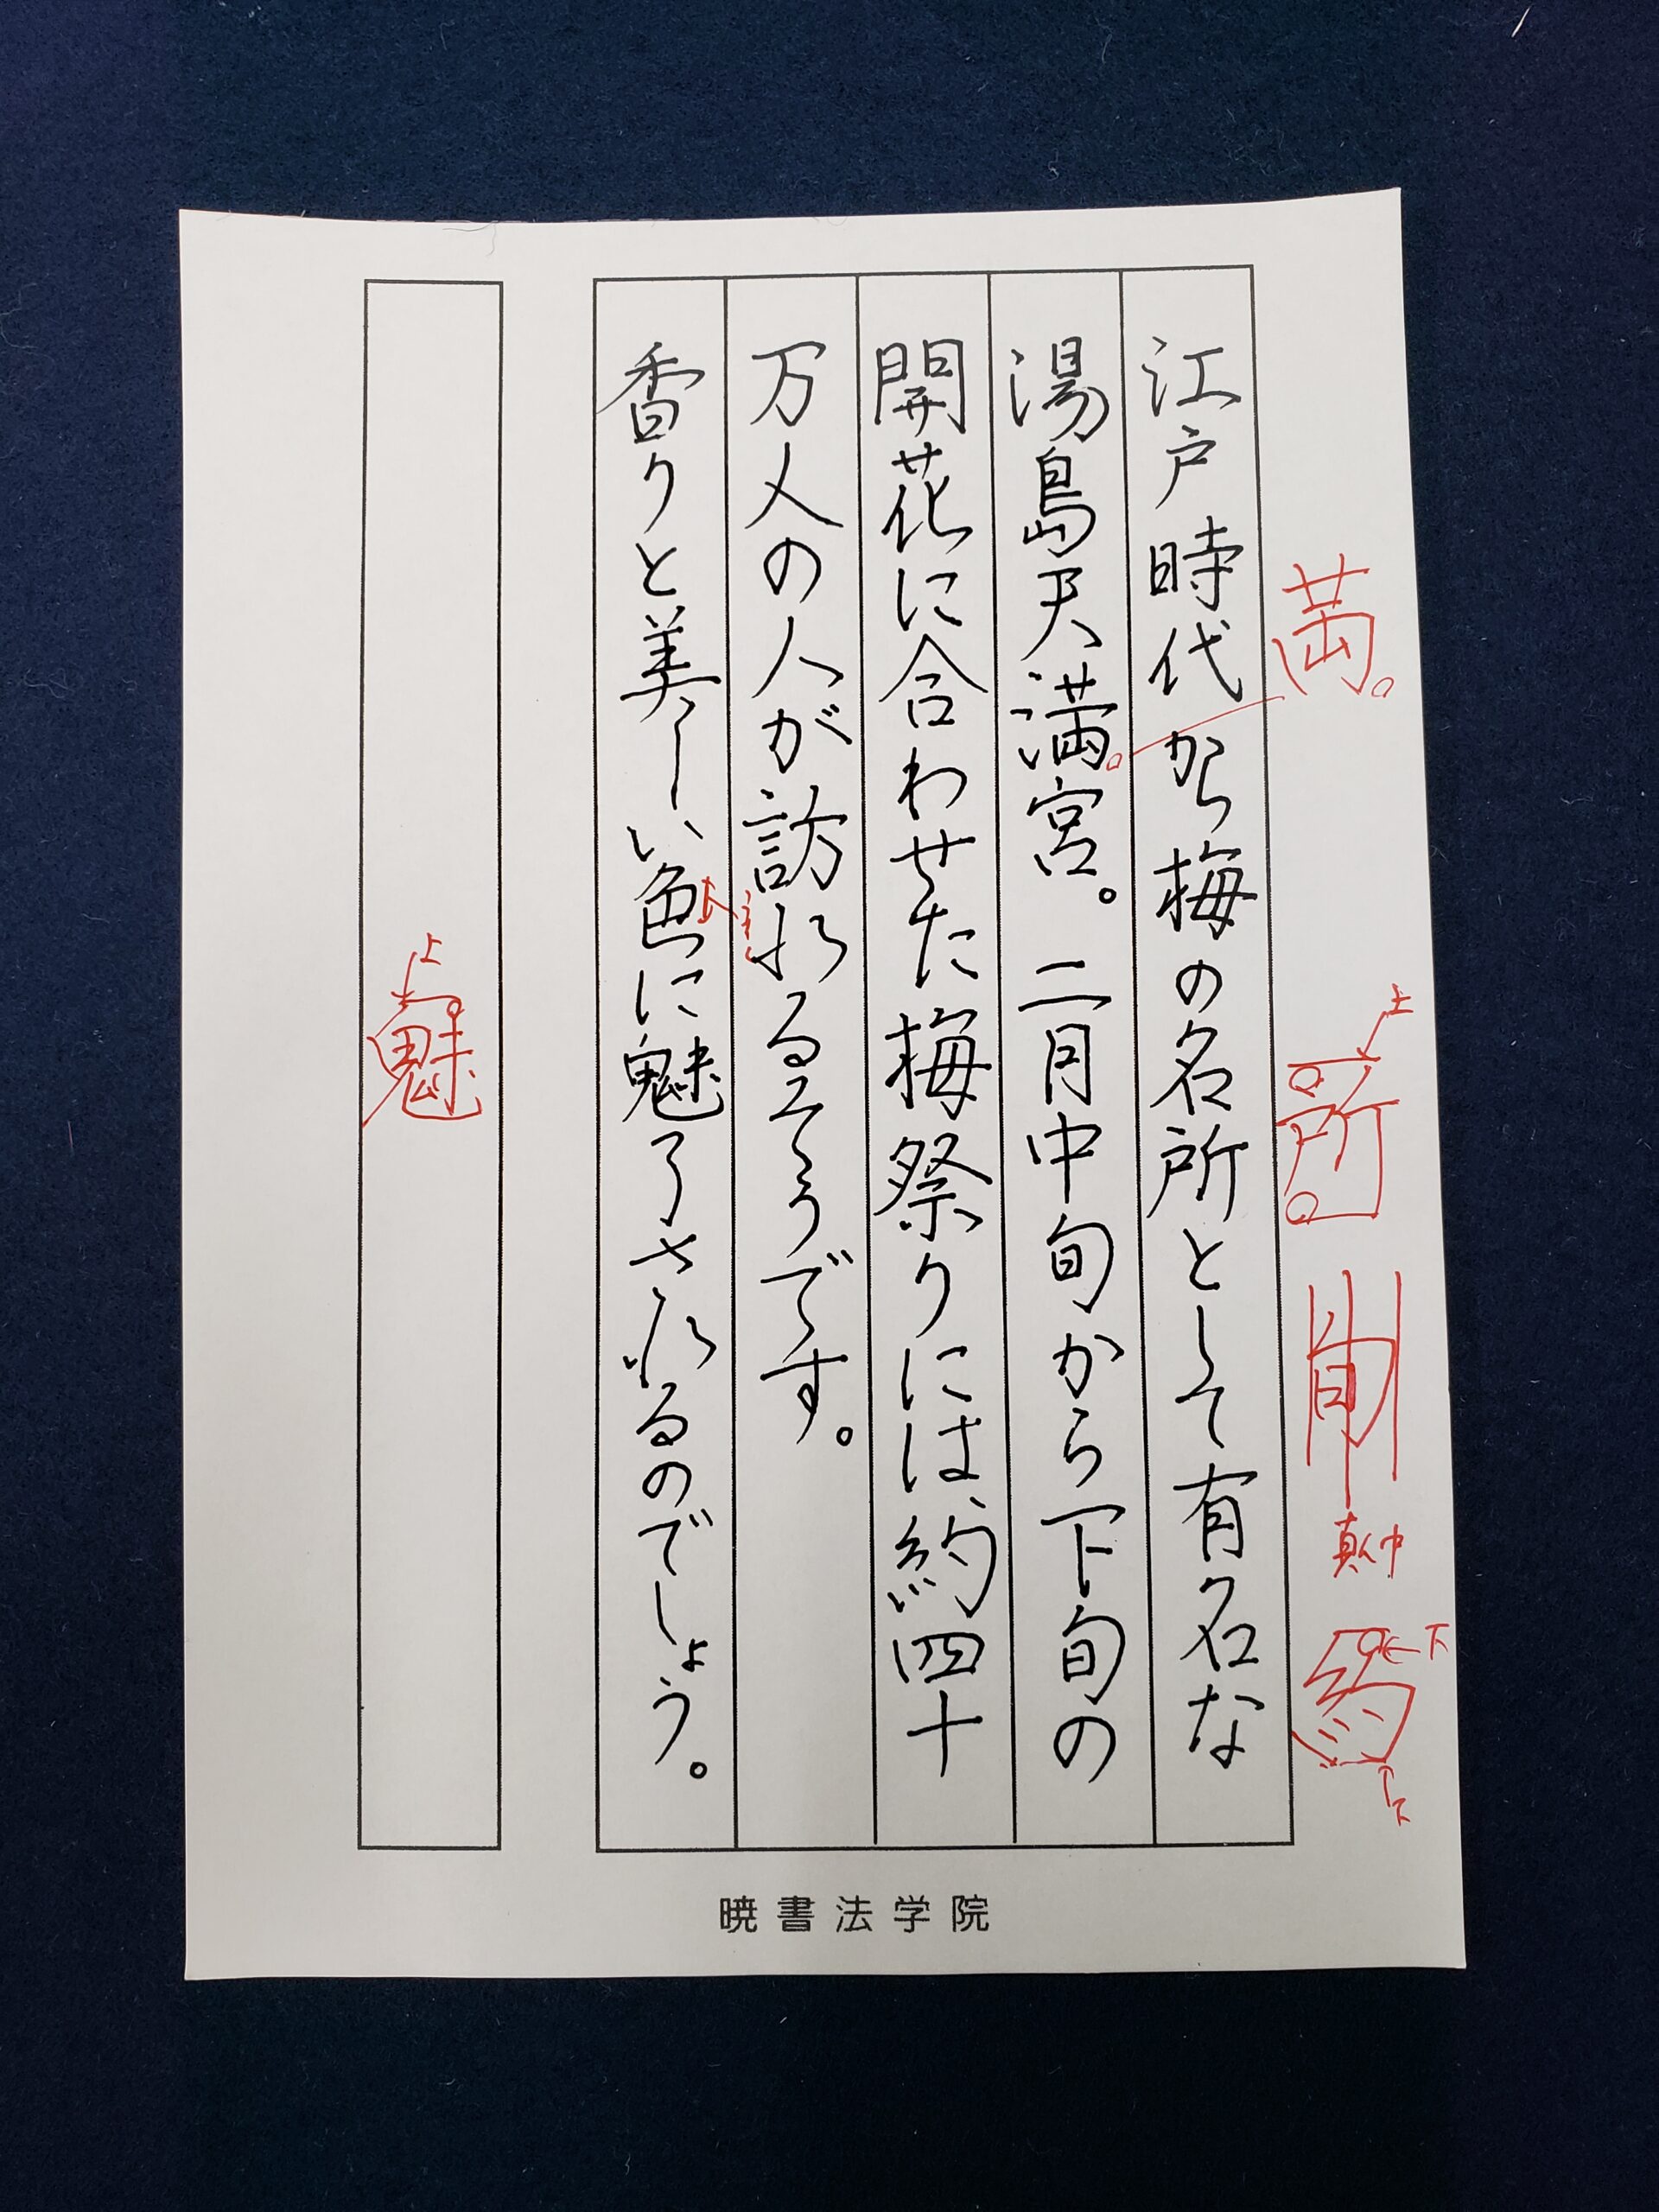 江戸時代から梅の名所として有名な
湯島天満宮。二月中旬から下旬の
開花に合わせた梅祭りには、約四十
万人の人が訪れるそうです。
香りと美しい色に魅了されるのでしょう。
満
上
所
旬
真中
下
約
下
上
魅
暁書法学院